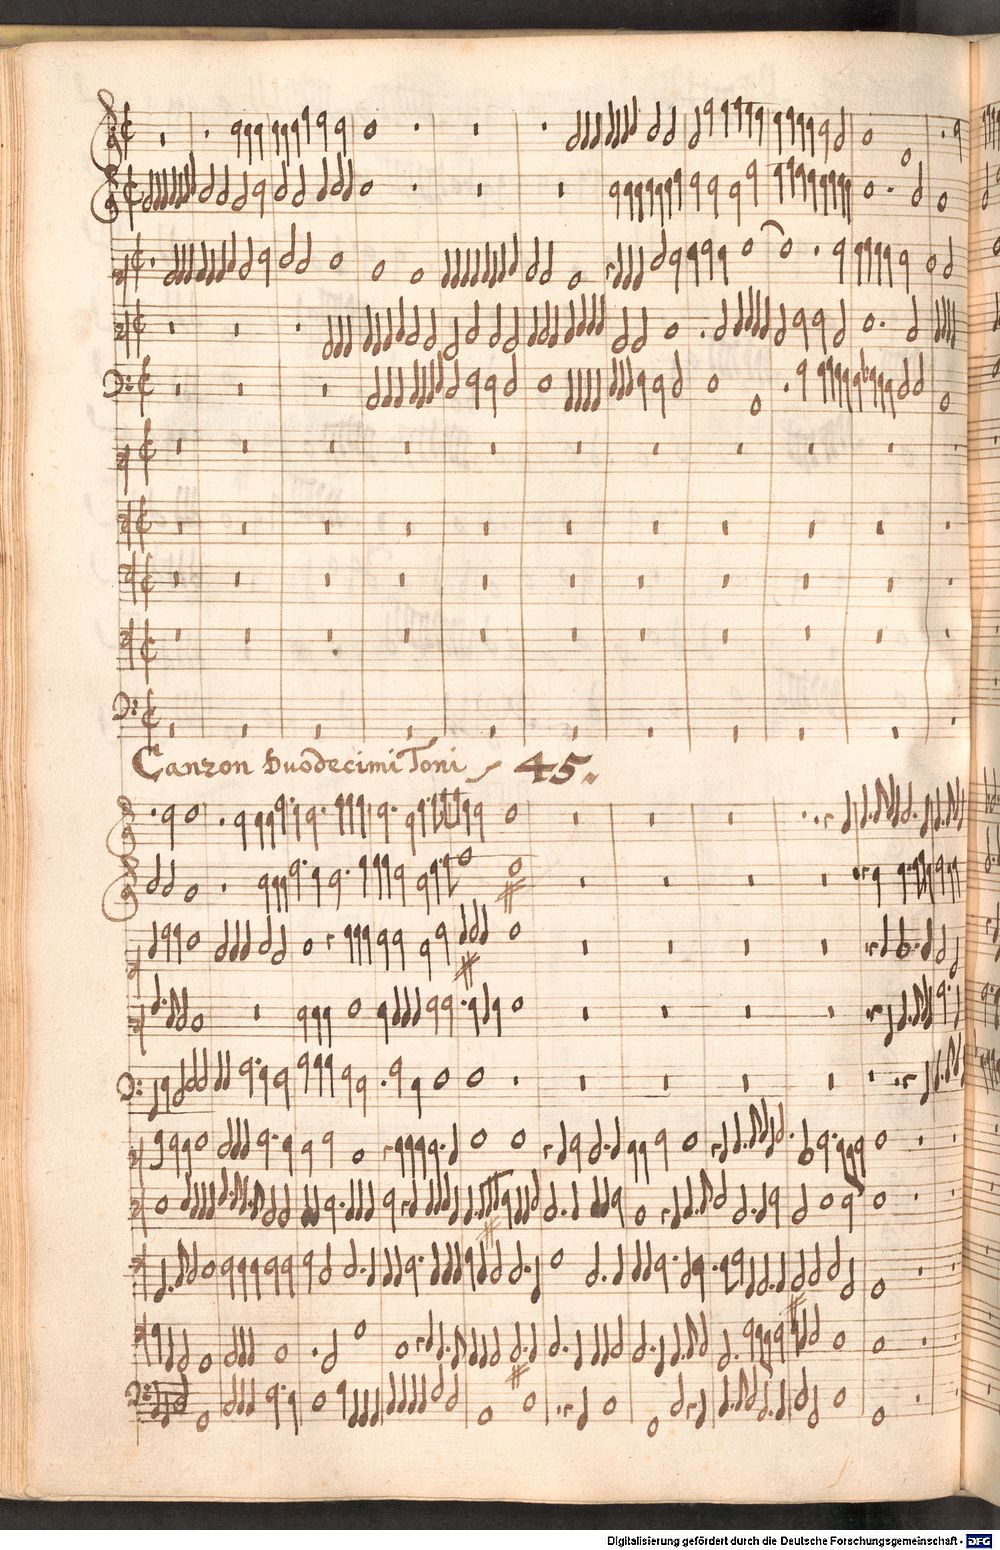 Canzon Duodecimi Toni 45.
Digitalisierung gefördert durch die Deutsche Forschungsgemeinschaft - DFG